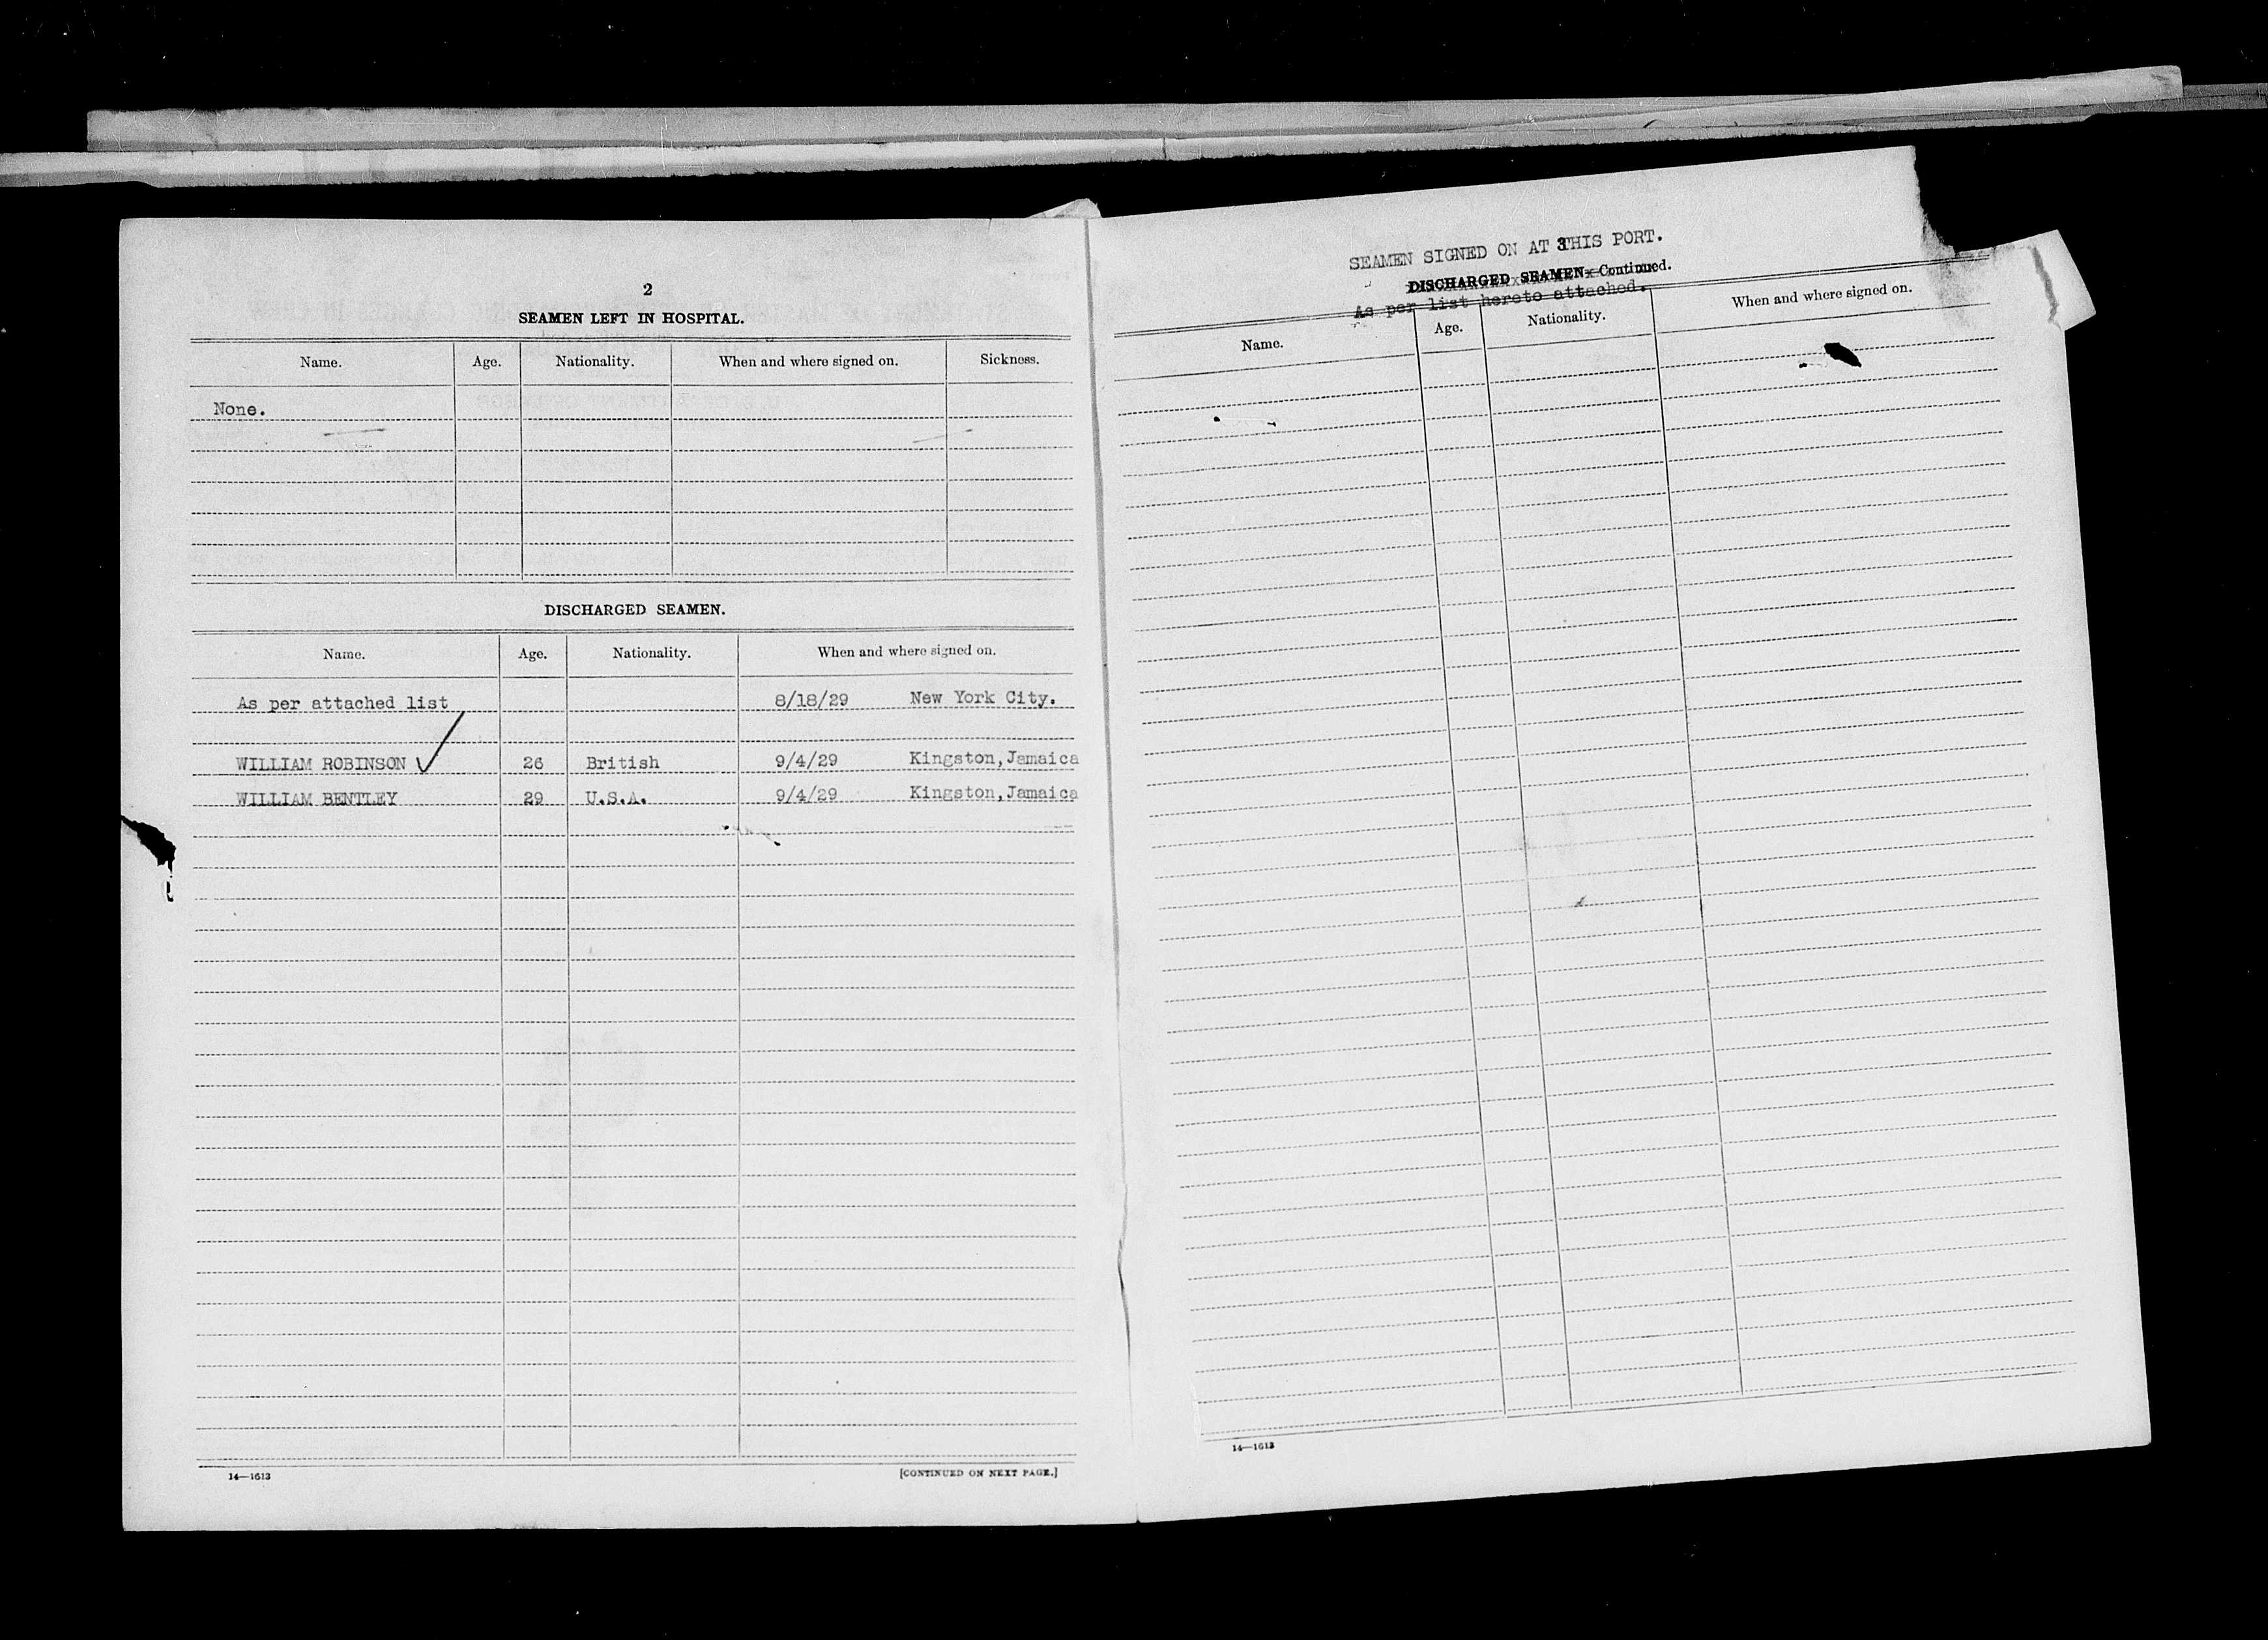 2
SEAMEN LEFT IN HOSPITAL.
Name. Age. Nationality. When and where signed on. Sickness.
None.
DISCHARGED SEAMEN.
Name. Age. Nationality. When and where signed on.
As per attached list 8/18/29 New York City.
WILLIAM ROBINSON 26 British 9/4/29 Kingston,Jamaica
WILLIAM BENTLEY 29 U.S.A. 9/4/29 Kingston,Jamaica
14—1613 [CONTINUED ON NEXT PAGE.]
3
SEAMEN SIGNED ON AT THIS PORT.
DISCHARGED SEAMEN—Continued.
As per list hereto attached.
Name. Age. Nationality. When and where signed on.
14—1613